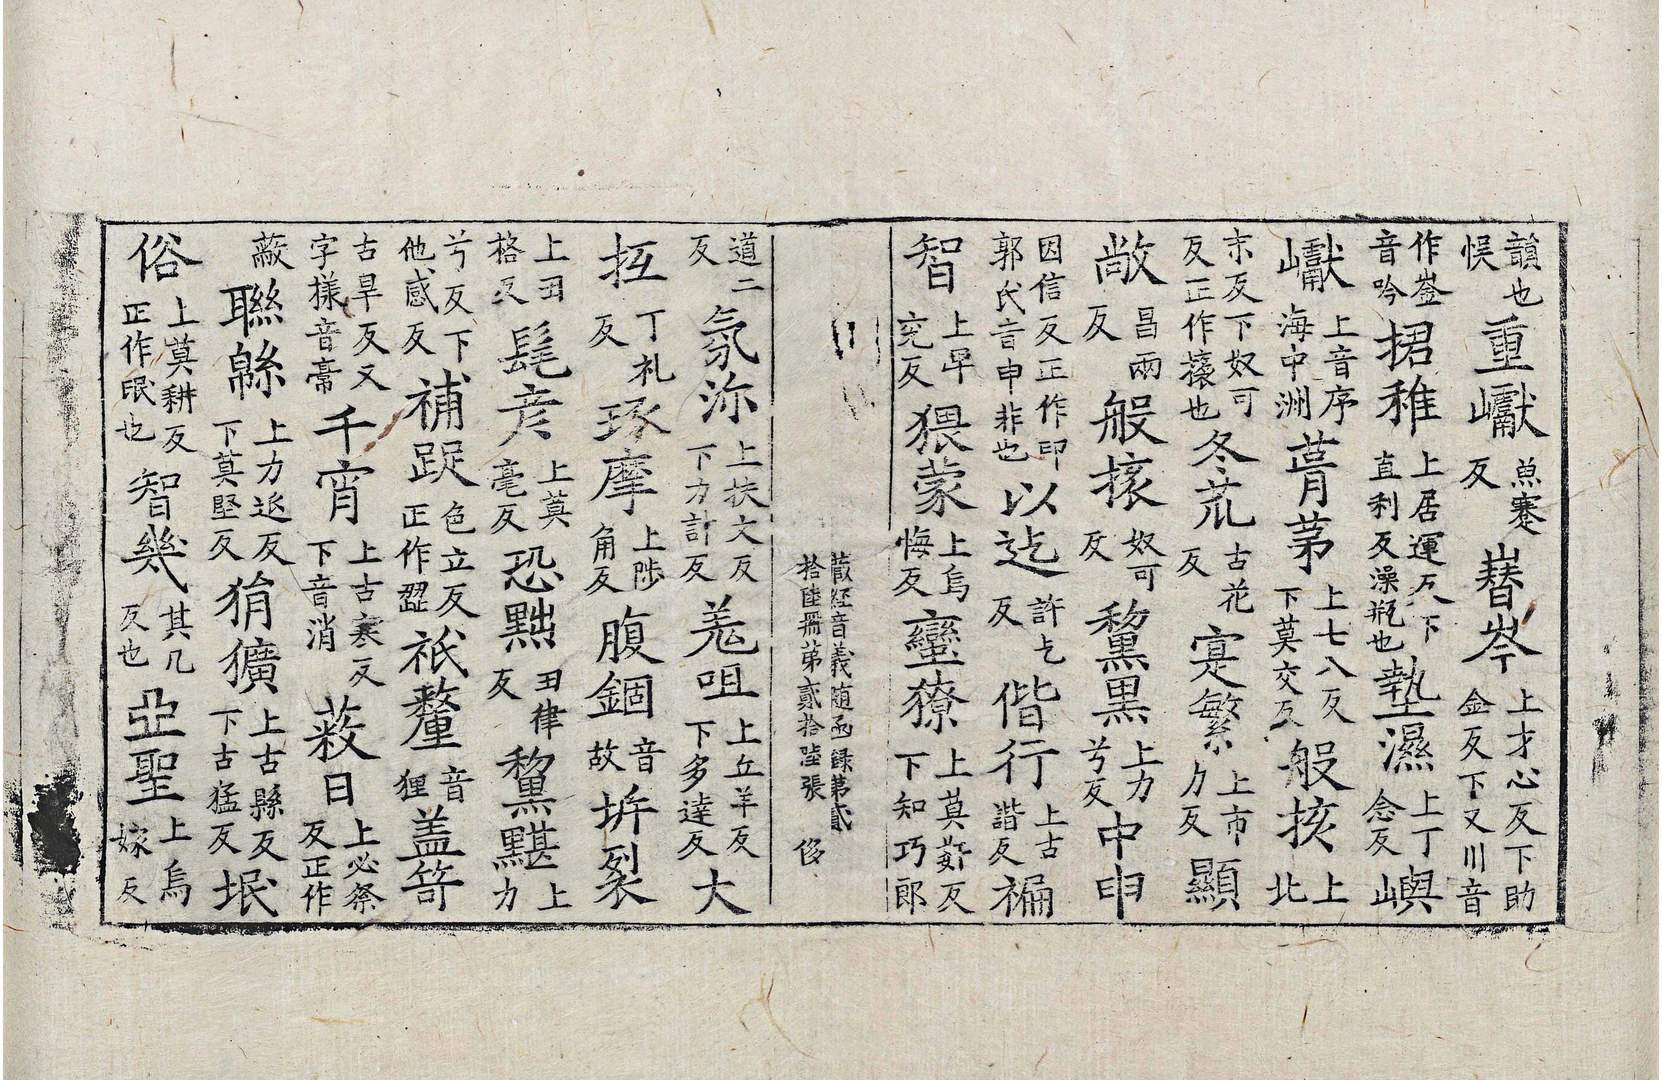 韻也悞重巘魚蹇反嶜岑上才心反下助金反下又川音
作崟音吟捃稚上居運反下直利反澡瓶也墊濕上丁念反嶼
巘上音序海中洲蒷茅上七八反下莫交反般挍上北
末反下奴可反正作攘也冬苽古花反寔繁上市力反顯
敞昌兩反般㨙奴可反黧黑上力兮反中申
因信反正作印郭氏音申非也以迄許乞反偕行上古諧反褊
智上早兖反猥蒙上烏悔反蠻獠上莫姧反下知巧郎
藏經音義随函録第貳
拾陸冊第貳拾陸張 侈
道二反氛沴上扶文反下力計反羗咀上丘羊反下多達反大
抵丁礼反琢摩上陟角反腹錮音故坼裂
上田格反髦彦上莫毫反恐黜田律反黧黮上力
兮反下他感反補踀色立反正作澀祇釐音狸盖笴
古旱反又字樣音槀千宵上古寒反下音消蔽日上必祭反正作
蔽聮緜上力延反下莫堅反狷獷上古縣反下古猛反垊
俗上莫耕反正作氓也智幾其几反也亞聖上烏嫁反